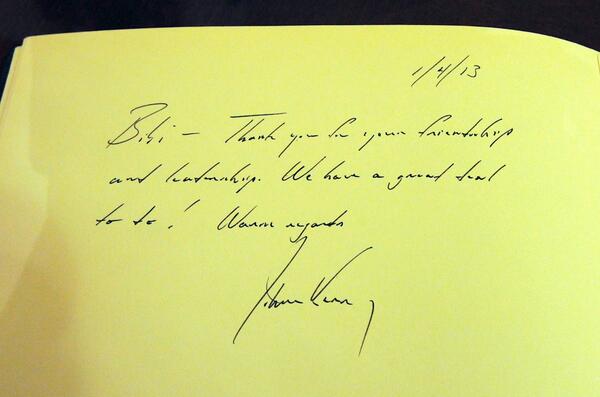 1/4/13
Bibi – Thank you for your friendship
and leadership. We have a great deal
to do! Warm regards
John Kerry